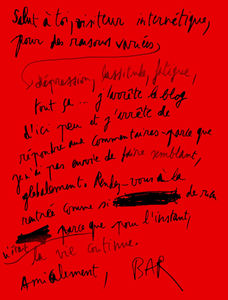 Salut à toi, visiteur internétique,
pour des raisons variées,
dépression, lassitude, fatigue,
tout ça... j'arrête le blog
d'ici peu et j'arrête de
répondre aux commentaires - parce que
j'n'ai pas envie de faire semblant,
globalement. Rendez-vous à la
rentrée comme si de rien
n'était parce que pour l'instant,
la vie continue.
Amicalement, BAR